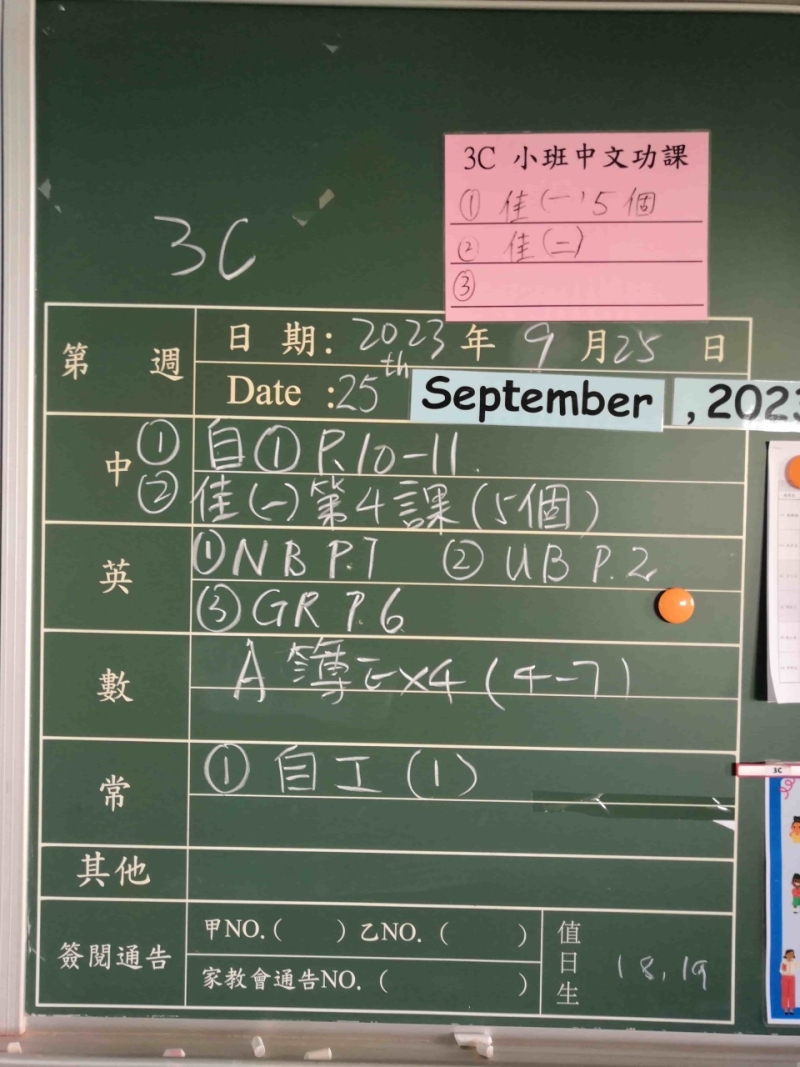 3C 小班中文功課
① 佳(一)5個
② 佳(二)
③
3C
第 週
日 期: 2023 年 9 月 25 日
Date : 25th September , 2023
中
① 自① P.10-11.
② 佳(一)第4課(5個)
英
① NB P.7 ② UB P.2
③ GR P.6
數
A 簿 Ex4 (4-7)
常
① 自工(1)
其他
簽閱通告
甲NO.( ) 乙NO.( )
家教會通告NO.( )
值日生
18,19
3C